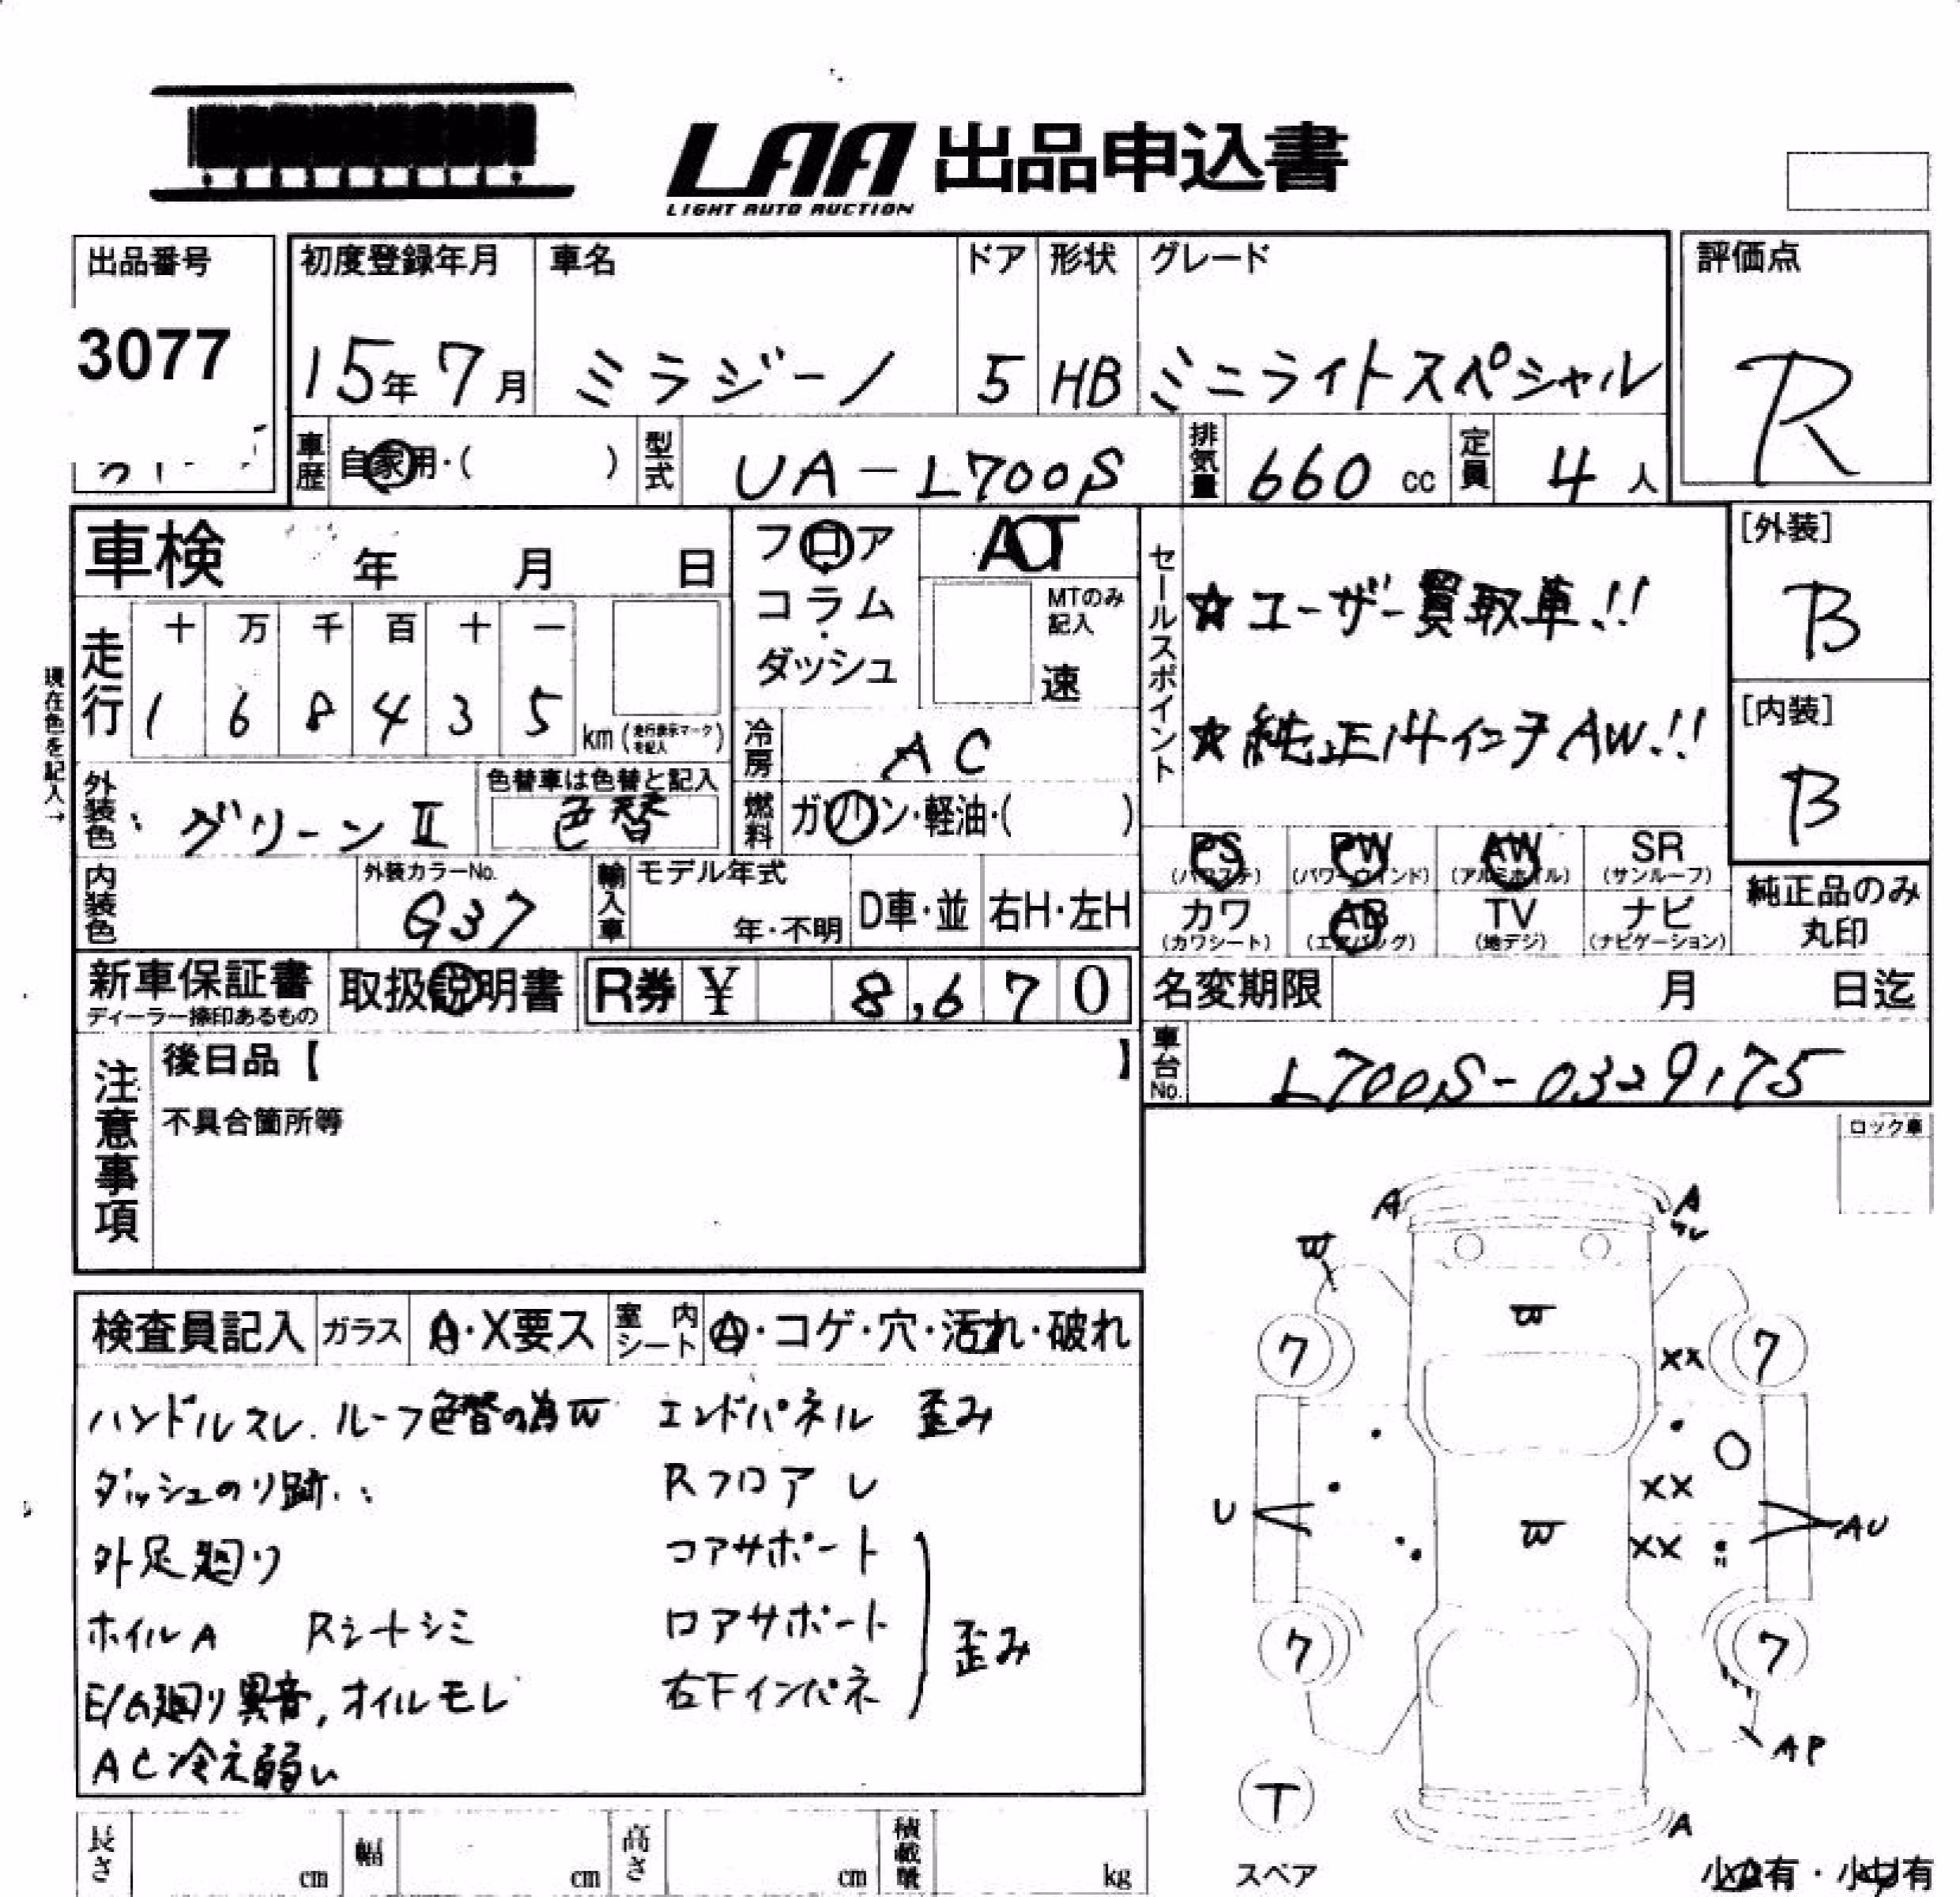 LAA 出品申込書
LIGHT AUTO AUCTION
出品番号 初度登録年月 車名 ドア 形状 グレード 評価点
3077 15年 7月 ミラジーノ 5 HB ミニライトスペシャル R
車歴 自家用・( ) 型式 UA-L700S 排気量 660 cc 定員 4 人
車検 年 月 日 フロア AT セールスポイント [外装]
コラム・ MTのみ記入 ☆ユーザー買取車!! B
走行 十 万 千 百 十 一 ダッシュ 速
現在色を記入→ 1 6 8 4 3 5 km (走行表示マークを記入) 冷房 AC ☆純正14インチAW!! [内装]
外装色 グリーンⅡ 色替車は色替と記入 色替 燃料 ガソリン・軽油・( ) B
PS (パワステ) PW (パワーウインド) AW (アルミホイル) SR (サンルーフ)
内装色 外装カラーNo. G37 輸入車 モデル年式 年・不明 D車・並 右H・左H カワ (カワシート) AB (エアバッグ) TV (地デジ) ナビ (ナビゲーション) 純正品のみ丸印
新車保証書 ディーラー捺印あるもの 取扱説明書 R券 ¥ 8,670 名変期限 月 日迄
注意事項 後日品【 】 車台No. L700S-0329175
不具合箇所等 ロック車
A A
W
W
検査員記入 ガラス A・X要ス 室内シート A・コゲ・穴・汚れ・破れ
ワ XX ワ
ハンドルスレ. ルーフ色替の為W エンドパネル 歪み
ダッシュのり跡 Rフロア レ XX
外足廻り コアサポート U W XX AU
ホイルA Rシートシミ ロアサポート 歪み ワ ワ
E/G廻り異音, オイルモレ 右下インパネ
AC冷え弱い AP
T A
長さ cm 幅 cm 高さ cm 積載量 kg スペア